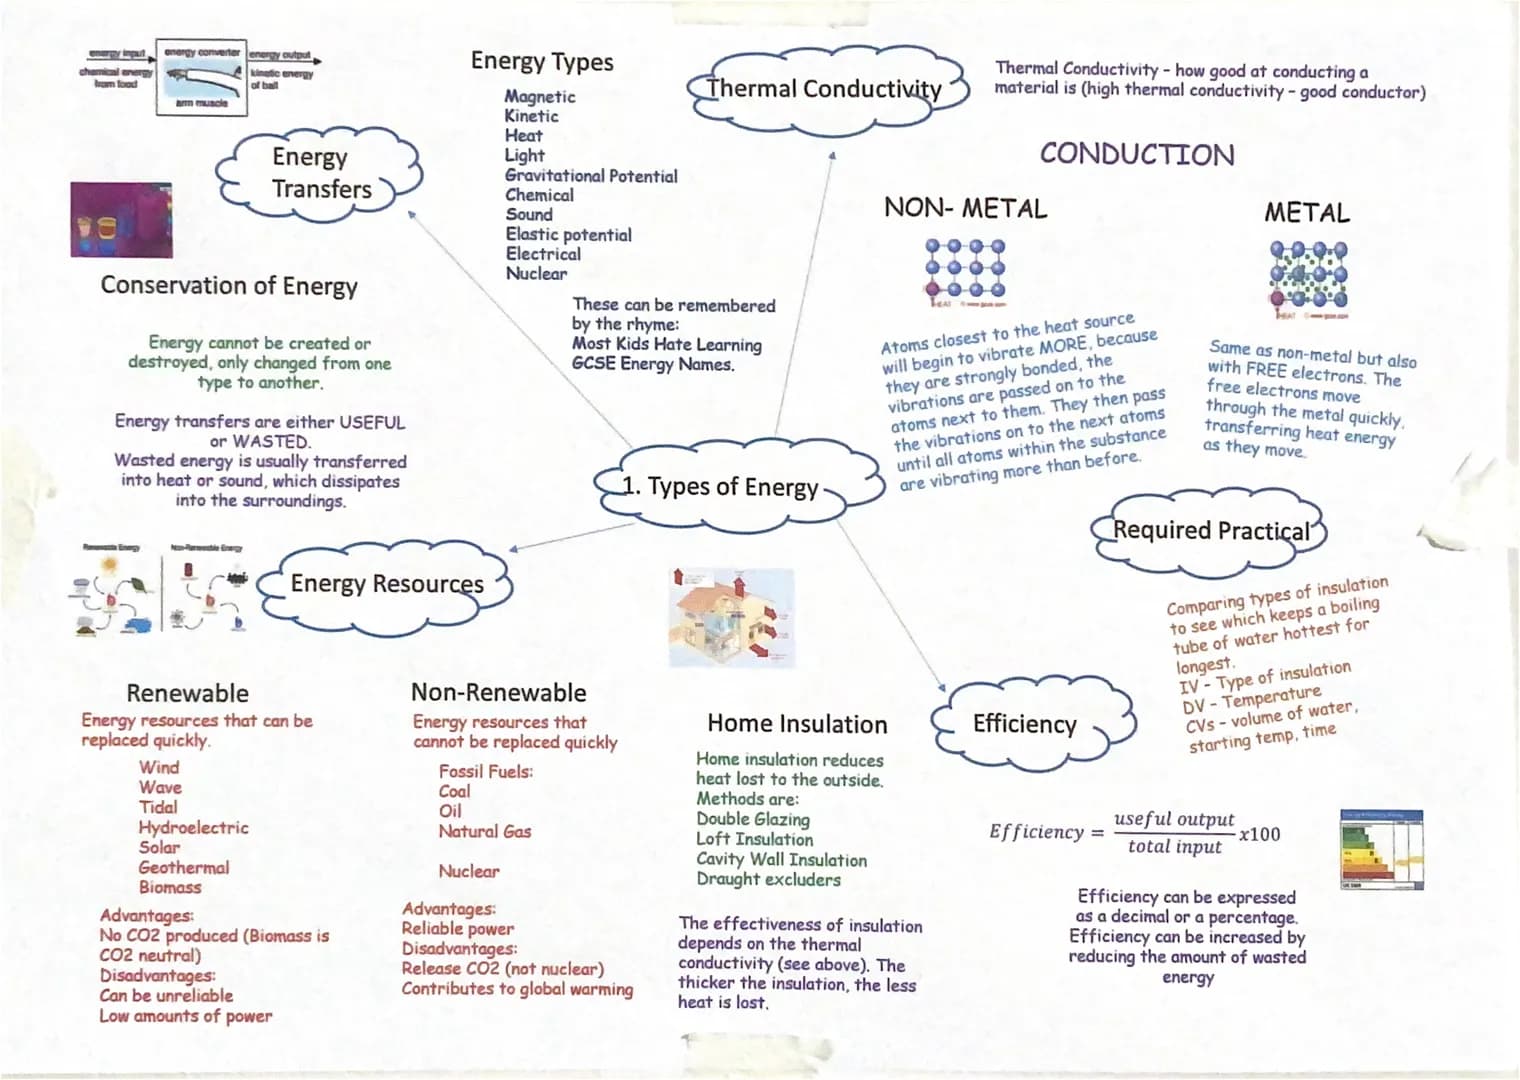 energy input
chemical energy
from food
energy converter
arm muscle
energy output
kinetic energy
of ball
Energy
Transfers
Conservation of Energy
Energy cannot be created or
destroyed, only changed from one
type to another.
Energy transfers are either USEFUL
or WASTED.
Wasted energy is usually transferred
into heat or sound, which dissipates
into the surroundings.
Energy Types
Magnetic
Kinetic
Heat
Light
Gravitational Potential
Chemical
Sound
Elastic potential
Electrical
Nuclear
These can be remembered
by the rhyme:
Most Kids Hate Learning
GCSE Energy Names.
Thermal Conductivity
Thermal Conductivity – how good at conducting a
material is (high thermal conductivity – good conductor)
CONDUCTION
NON- METAL
HEAT
Atoms closest to the heat source
will begin to vibrate MORE, because
they are strongly bonded, the
vibrations are passed on to the
atoms next to them. They then pass
the vibrations on to the next atoms
until all atoms within the substance
are vibrating more than before.
METAL
HEAT
Same as non-metal but also
with FREE electrons. The
free electrons move
through the metal quickly,
transferring heat energy
as they move.
1. Types of Energy
Required Practical
Comparing types of insulation
to see which keeps a boiling
tube of water hottest for
longest.
IV – Type of insulation
DV – Temperature
CVs – volume of water,
starting temp, time
Energy Resources
Renewable Energy
Non-Renewable Energy
Renewable
Energy resources that can be
replaced quickly.
Wind
Wave
Tidal
Hydroelectric
Solar
Geothermal
Biomass
Advantages:
No CO2 produced (Biomass is
CO2 neutral)
Disadvantages:
Can be unreliable
Low amounts of power
Non-Renewable
Energy resources that
cannot be replaced quickly
Fossil Fuels:
Coal
Oil
Natural Gas
Nuclear
Advantages:
Reliable power
Disadvantages:
Release CO2 (not nuclear)
Contributes to global warming
Home Insulation
Home insulation reduces
heat lost to the outside.
Methods are:
Double Glazing
Loft Insulation
Cavity Wall Insulation
Draught excluders
The effectiveness of insulation
depends on the thermal
conductivity (see above). The
thicker the insulation, the less
heat is lost.
Efficiency
Efficiency = useful output / total input x100
Efficiency can be expressed
as a decimal or a percentage.
Efficiency can be increased by
reducing the amount of wasted
energy